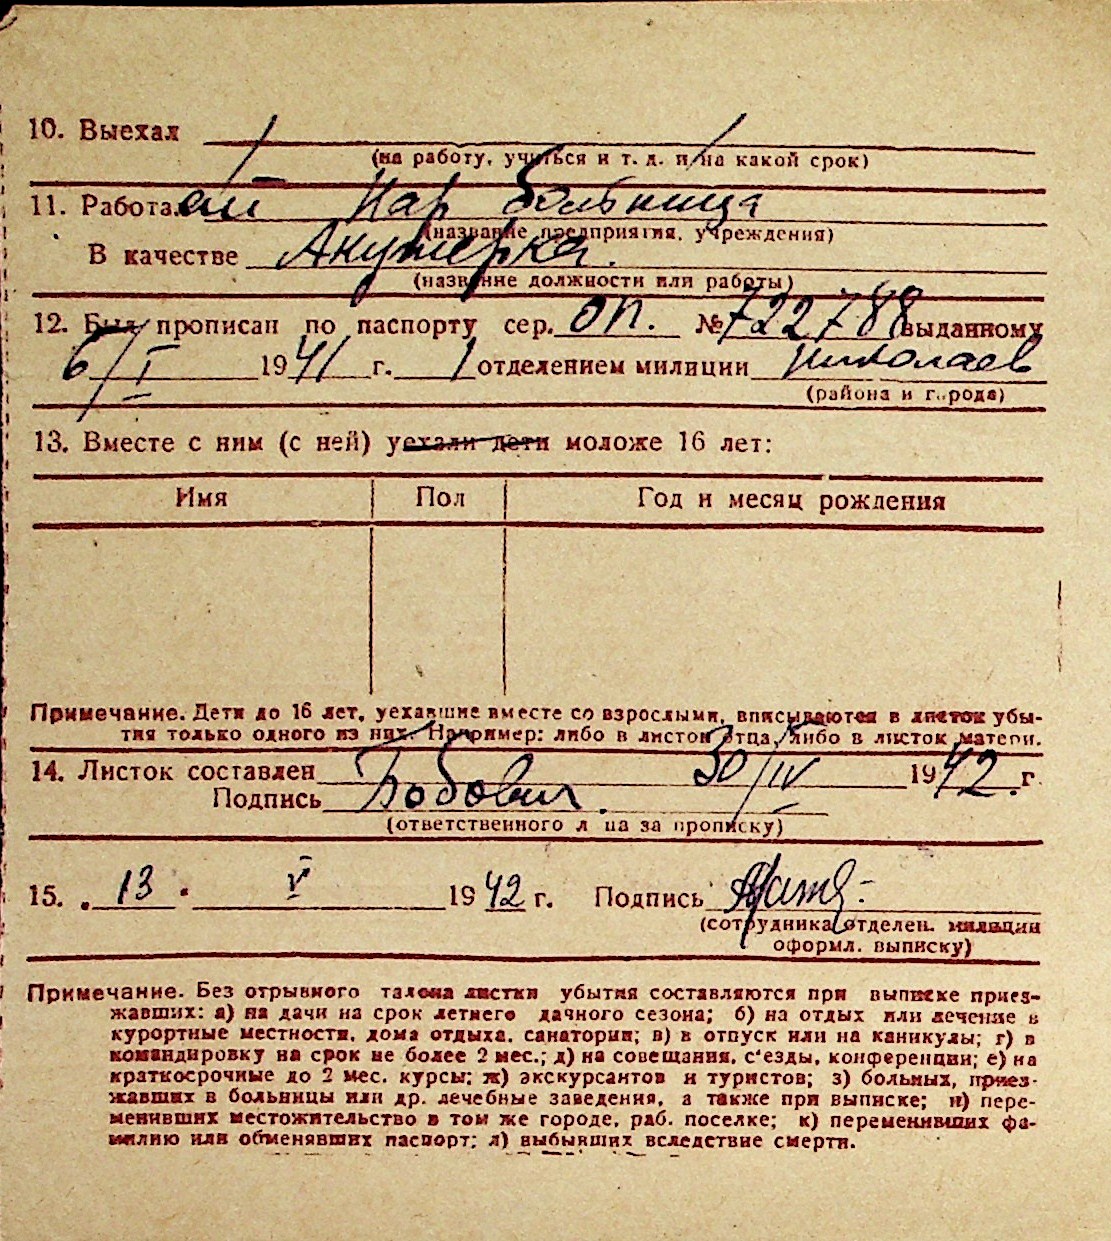 10. Выехал
(на работу, учиться и т. д. и на какой срок)
11. Работал Нар больница
(название предприятия, учреждения)
В качестве Акушерка.
(название должности или работы)
12. Был прописан по паспорту сер. ОП. № 722788 выданному
6/I 1941 г. 1 отделением милиции Николаев
(района и города)
13. Вместе с ним (с ней) уехали дети моложе 16 лет:
Имя Пол Год и месяц рождения
Примечание. Дети до 16 лет, уехавшие вместе со взрослыми, вписываются в листок убы-
тия только одного из них. Например: либо в листок отца, либо в листок матери.
14. Листок составлен 30/IV 1942 г.
Подпись Бобович.
(ответственного л ца за прописку)
15. 13. V 1942 г. Подпись
(сотрудника отделен. милиции
оформл. выписку)
Примечание. Без отрывного талона листки убытия составляются при выписке приез-
жавших: а) на дачи на срок летнего дачного сезона; б) на отдых или лечение в
курортные местности, дома отдыха, санатории; в) в отпуск или на каникулы; г) в
командировку на срок не более 2 мес.; д) на совещания, с'езды, конференции; е) на
краткосрочные до 2 мес. курсы; ж) экскурсантов и туристов; з) больных, приез-
жавших в больницы или др. лечебные заведения, а также при выписке; и) пере-
менивших местожительство в том же городе, раб. поселке; к) переменивших фа-
милию или обменявших паспорт; л) выбывших вследствие смерти.